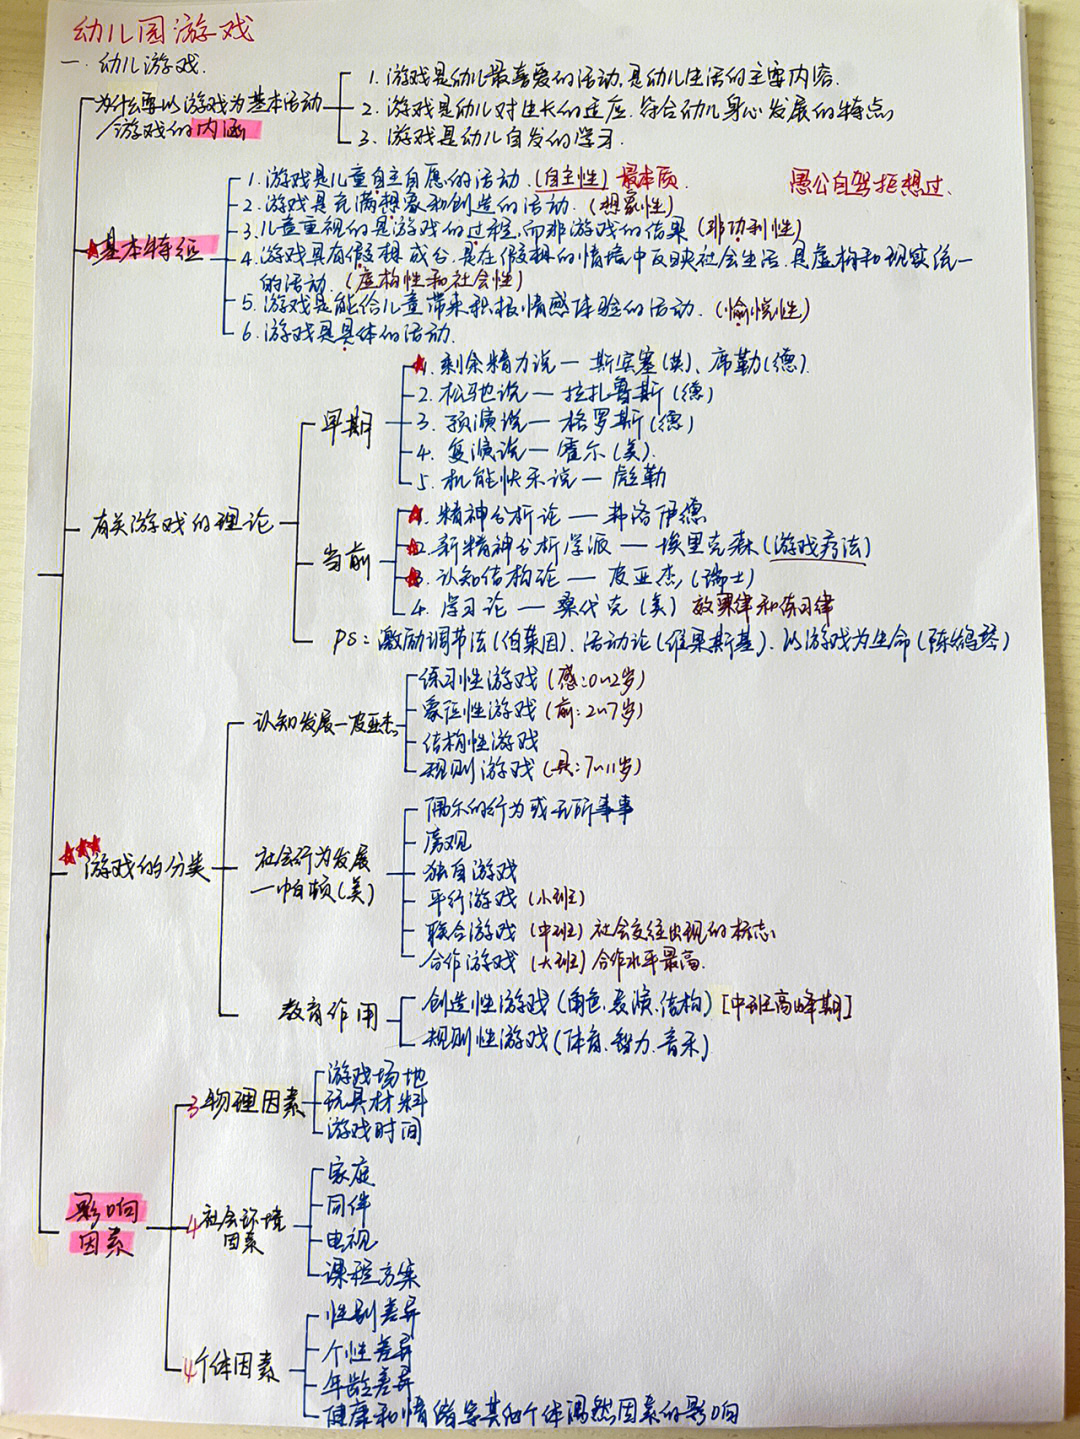 幼儿园游戏
一. 幼儿游戏.
为什么要以游戏为基本活动
/游戏的内涵
1. 游戏是幼儿最喜爱的活动,是幼儿生活的主要内容.
2. 游戏是幼儿对生长的适应,符合幼儿身心发展的特点
3. 游戏是幼儿自发的学习.
★基本特征
愚公自驾拒想过.
1. 游戏是儿童自主自愿的活动.(自主性) 最本质.
2. 游戏是充满想象和创造的活动. (想象性)
3. 儿童重视的是游戏的过程,而非游戏的结果 (非功利性)
4. 游戏具有假想成分,是在假想的情境中反映社会生活,是虚构和现实统一
的活动. (虚构性和社会性)
5. 游戏是能给儿童带来积极情感体验的活动. (愉悦性)
6. 游戏是具体的活动.
有关游戏的理论
早期
★1. 剩余精力说 — 斯宾塞(英)、席勒(德).
2. 松驰说 — 拉扎鲁斯 (德)
3. 预演说 — 格罗斯 (德)
4. 复演说 — 霍尔 (美).
5. 机能快乐说 — 彪勒
当前
★1. 精神分析论 — 弗洛伊德
★2. 新精神分析学派 — 埃里克森 (游戏疗法)
★3. 认知结构论 — 皮亚杰 (瑞士)
4. 学习论 — 桑代克 (美) 效果律和练习律
ps: 激励调节法(伯莱因)、活动论(维果斯基)、以游戏为生命(陈鹤琴)
★★★游戏的分类
认知发展—皮亚杰
练习性游戏 (感:0~2岁)
象征性游戏 (前:2~7岁)
结构性游戏
规则游戏 (具:7~11岁)
社会行为发展
—帕顿(美)
偶尔的行为或无所事事
旁观
独自游戏
平行游戏 (小班)
联合游戏 (中班) 社会交往出现的标志
合作游戏 (大班) 合作水平最高.
教育作用
创造性游戏 (角色、表演、结构) [中班高峰期]
规则性游戏 (体育、智力、音乐)
影响
因素
3物理因素
游戏场地
玩具材料
游戏时间
4社会环境
因素
家庭
同伴
电视
课程方案
4个体因素
性别差异
个性差异
年龄差异
健康和情绪等其他个体偶然因素的影响